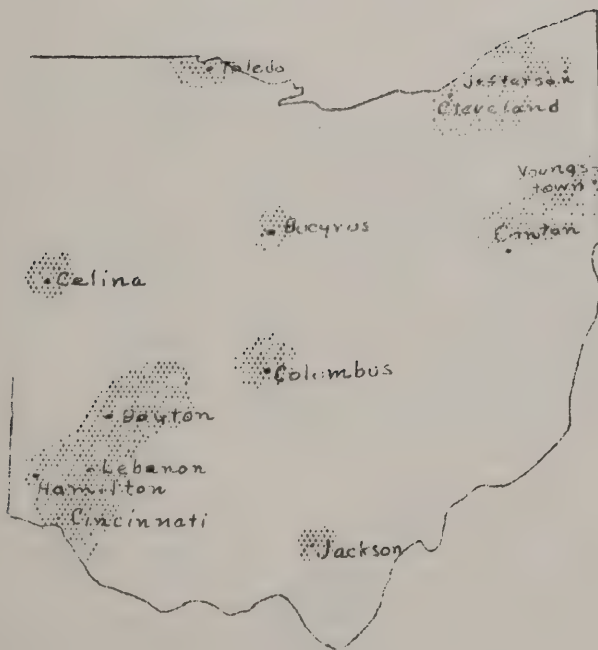 Toledo
Jefferson
Cleveland
Youngs-
town
Bucyrus
Canton
Celina
Columbus
Dayton
Lebanon
Hamilton
Cincinnati
Jackson